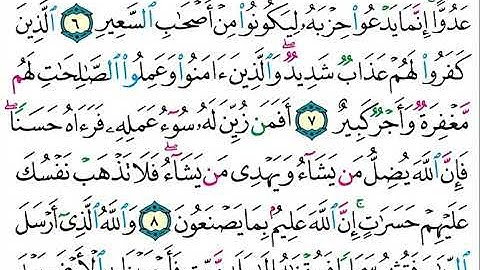 عَدُوًّا إِنَّمَا يَدْعُوا۟ حِزْبَهُۥ لِيَكُونُوا۟ مِنْ أَصْحَٰبِ ٱلسَّعِيرِ ٦ ٱلَّذِينَ
كَفَرُوا۟ لَهُمْ عَذَابٌ شَدِيدٌ ۖ وَٱلَّذِينَ ءَامَنُوا۟ وَعَمِلُوا۟ ٱلصَّٰلِحَٰتِ لَهُم
مَّغْفِرَةٌ وَأَجْرٌ كَبِيرٌ ٧ أَفَمَن زُيِّنَ لَهُۥ سُوٓءُ عَمَلِهِۦ فَرَءَاهُ حَسَنًا ۖ
فَإِنَّ ٱللَّهَ يُضِلُّ مَن يَشَآءُ وَيَهْدِى مَن يَشَآءُ ۖ فَلَا تَذْهَبْ نَفْسُكَ
عَلَيْهِمْ حَسَرَٰتٍ ۚ إِنَّ ٱللَّهَ عَلِيمٌۢ بِمَا يَصْنَعُونَ ٨ وَٱللَّهُ ٱلَّذِىٓ أَرْسَلَ